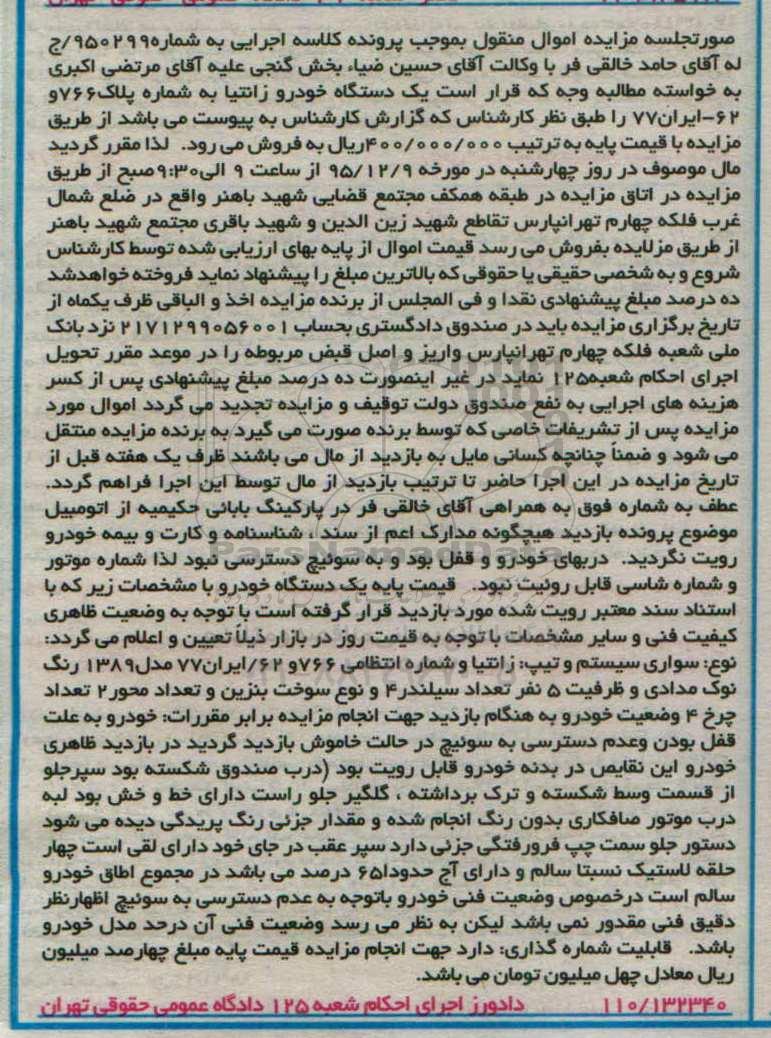 صورتجلسه مزایده اموال منقول بموجب پرونده کلاسه اجرایی به شماره۹۵۰۲۹۹/ج
له آقای حامد خالقی فر با وکالت آقای حسین ضیاء بخش گنجی علیه آقای مرتضی اکبری
به خواسته مطالبه وجه که قرار است یک دستگاه خودرو زانتیا به شماره پلاک۷۶۶و
۶۲-ایران۷۷ را طبق نظر کارشناس که گزارش کارشناس به پیوست می باشد از طریق
مزایده با قیمت پایه به ترتیب ۴۰۰/۰۰۰/۰۰۰ریال به فروش می رود. لذا مقرر گردید
مال موصوف در روز چهارشنبه در مورخه ۹۵/۱۲/۹ از ساعت ۹ الی۹:۳۰صبح از طریق
مزایده در اتاق مزایده در طبقه همکف مجتمع قضایی شهید باهنر واقع در ضلع شمال
غرب فلکه چهارم تهرانپارس تقاطع شهید زین الدین و شهید باقری مجتمع شهید باهنر
از طریق مزلایده بفروش می رسد قیمت اموال از پایه بهای ارزیابی شده توسط کارشناس
شروع و به شخصی حقیقی یا حقوقی که بالاترین مبلغ را پیشنهاد نماید فروخته خواهدشد
ده درصد مبلغ پیشنهادی نقدا و فی المجلس از برنده مزایده اخذ و الباقی ظرف یکماه از
تاریخ برگزاری مزایده باید در صندوق دادگستری بحساب ۲۱۷۱۲۹۹۰۵۶۰۰۱ نزد بانک
ملی شعبه فلکه چهارم تهرانپارس واریز و اصل قبض مربوطه را در موعد مقرر تحویل
اجرای احکام شعبه۱۲۵ نماید در غیر اینصورت ده درصد مبلغ پیشنهادی پس از کسر
هزینه های اجرایی به نفع صندوق دولت توقیف و مزایده تجدید می گردد اموال مورد
مزایده پس از تشریفات خاصی که توسط برنده صورت می گیرد به برنده مزایده منتقل
می شود و ضمناً چنانچه کسانی مایل به بازدید از مال می باشند ظرف یک هفته قبل از
تاریخ مزایده در این اجرا حاضر تا ترتیب بازدید از مال توسط این اجرا فراهم گردد.
عطف به شماره فوق به همراهی آقای خالقی فر در پارکینگ بابائی حکیمیه از اتومبیل
موضوع پرونده بازدید هیچگونه مدارک اعم از سند ، شناسنامه و کارت و بیمه خودرو
رویت نگردید. دربهای خودرو و قفل بود و به سوئیچ دسترسی نبود لذا شماره موتور
و شماره شاسی قابل روئیت نبود. قیمت پایه یک دستگاه خودرو با مشخصات زیر که با
استناد سند معتبر رویت شده مورد بازدید قرار گرفته است با توجه به وضعیت ظاهری
کیفیت فنی و سایر مشخصات با توجه به قیمت روز در بازار ذیلاً تعیین و اعلام می گردد:
نوع: سواری سیستم و تیپ: زانتیا و شماره انتظامی ۷۶۶و ۶۲/ایران۷۷ مدل۱۳۸۹ رنگ
نوک مدادی و ظرفیت ۵ نفر تعداد سیلندر۴ و نوع سوخت بنزین و تعداد محور۲ تعداد
چرخ ۴ وضعیت خودرو به هنگام بازدید جهت انجام مزایده برابر مقررات: خودرو به علت
قفل بودن وعدم دسترسی به سوئیچ در حالت خاموش بازدید گردید در بازدید ظاهری
خودرو این نقایص در بدنه خودرو قابل رویت بود (درب صندوق شکسته بود سپرجلو
از قسمت وسط شکسته و ترک برداشته ، گلگیر جلو راست دارای خط و خش بود لبه
درب موتور صافکاری بدون رنگ انجام شده و مقدار جزئی رنگ پریدگی دیده می شود
دستور جلو سمت چپ فرورفتگی جزئی دارد سپر عقب در جای خود دارای لقی است چهار
حلقه لاستیک نسبتا سالم و دارای آج حدودا۶۵ درصد می باشد در مجموع اطاق خودرو
سالم است درخصوص وضعیت فنی خودرو باتوجه به عدم دسترسی به سوئیچ اظهارنظر
دقیق فنی مقدور نمی باشد لیکن به نظر می رسد وضعیت فنی آن درحد مدل خودرو
باشد. قابلیت شماره گذاری: دارد جهت انجام مزایده قیمت پایه مبلغ چهارصد میلیون
ریال معادل چهل میلیون تومان می باشد.
۱۱۰/۱۳۲۳۴۰ دادورز اجرای احکام شعبه ۱۲۵ دادگاه عمومی حقوقی تهران